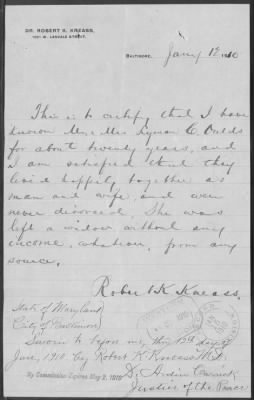 DR. ROBERT K. KNEASS,
BALTIMORE, Jany 12 1910
This is to certify that I have
known Mr & Mrs Lyman C.
for about twenty years, and
I am satisfied that they
lived happily together as
man and wife, and were
never divorced. She was
left a widow without any
income, whatever, from any
source.
Robert K Kneass.
State of Maryland
City of Baltimore
Sworn to before me, this day of
Jany, 1910 by Robert K Kneass M.D.
Justice of the Peace
My Commission Expires May 2, 1910